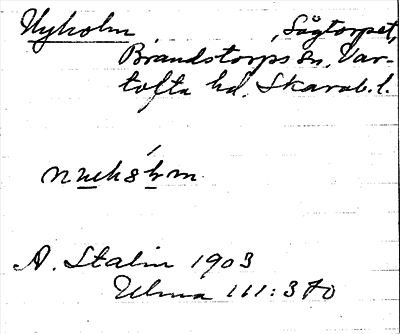 Nyholm, Sågtorpet,
Brandstorps sn, Var-
tofta hd, Skarab. l.
A. Stalin 1903
Ulma 111:370